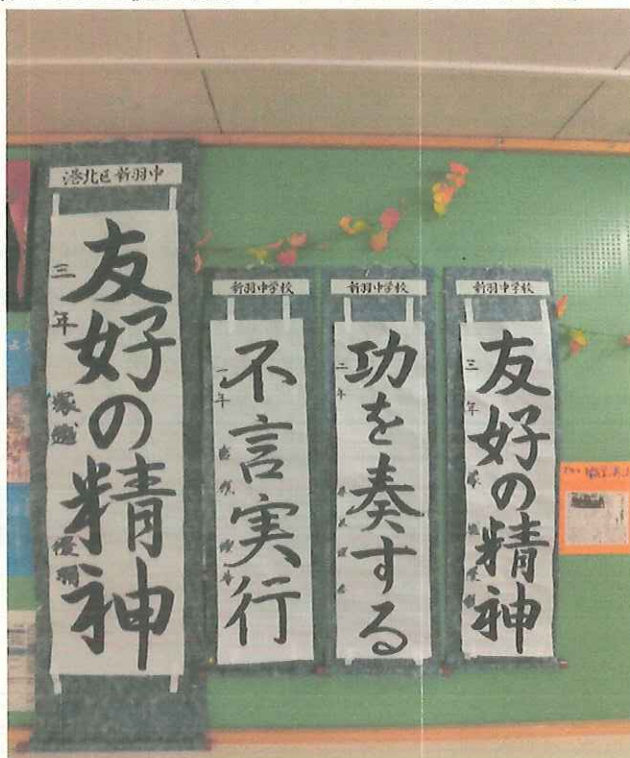 港北区新羽中
友好の精神
三年
新羽中学校
不言実行
一年
新羽中学校
功を奏する
二年
新羽中学校
友好の精神
三年